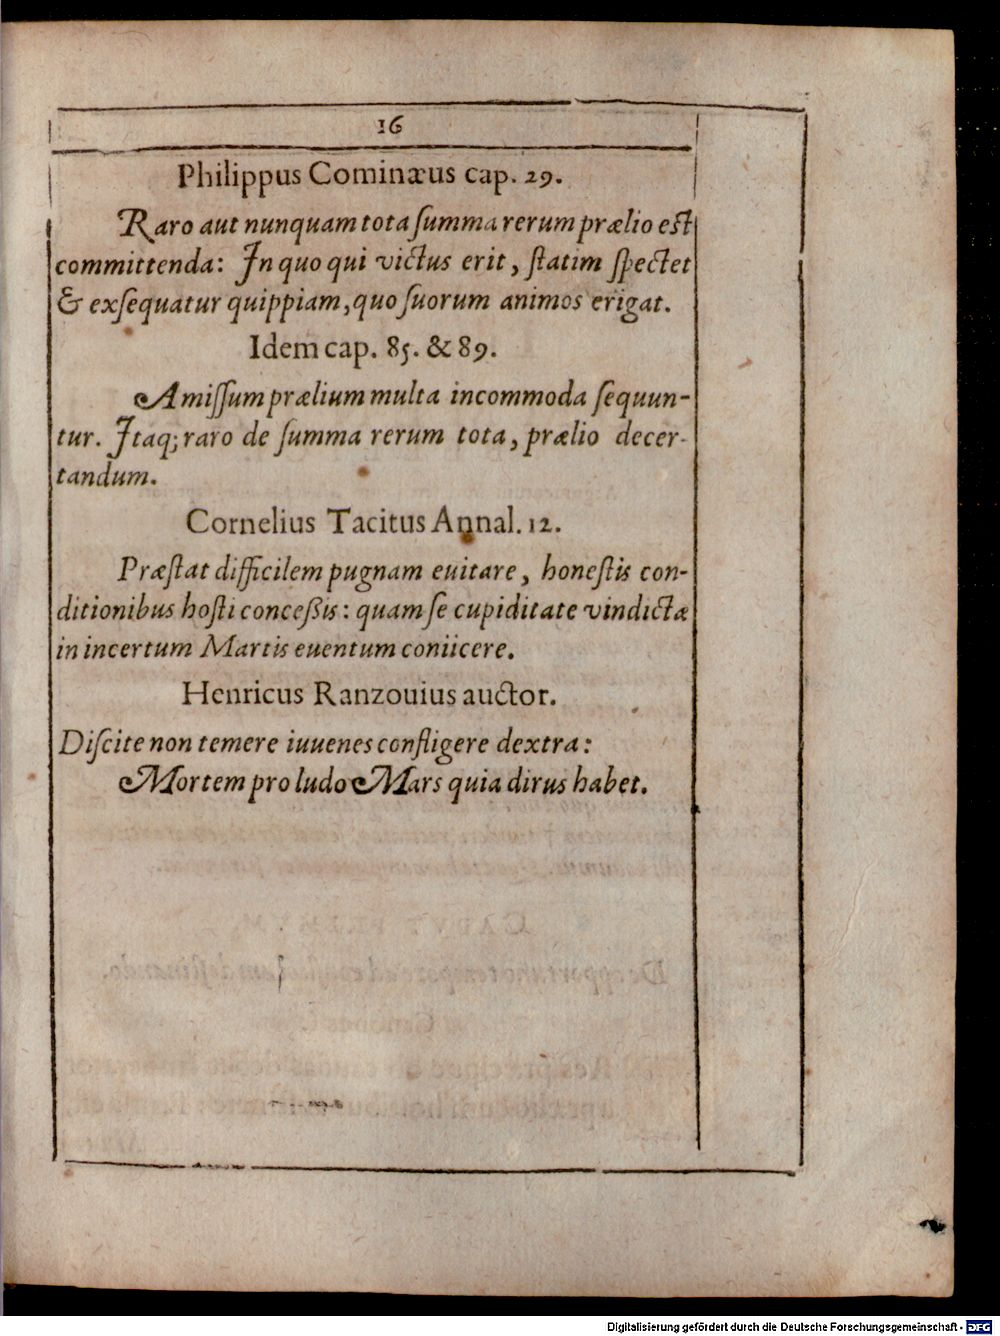 16
Philippus Cominæus cap. 29.
Raro aut nunquam tota ſumma rerum prælio est
committenda: In quo qui victus erit, ſtatim ſpectet
& exſequatur quippiam, quo ſuorum animos erigat.
Idem cap. 85. & 89.
Amiſſum prælium multa incommoda ſequun-
tur. Itaq; raro de ſumma rerum tota, prælio decer-
tandum.
Cornelius Tacitus Annal. 12.
Præſtat difficilem pugnam euitare, honeſtis con-
ditionibus hoſti conceßis: quam ſe cupiditate vindictæ
in incertum Martis euentum coniicere.
Henricus Ranzouius auctor.
Diſcite non temere iuuenes confligere dextra:
Mortem pro ludo Mars quia dirus habet.
Digitalisierung gefördert durch die Deutsche Forschungsgemeinschaft - DFG